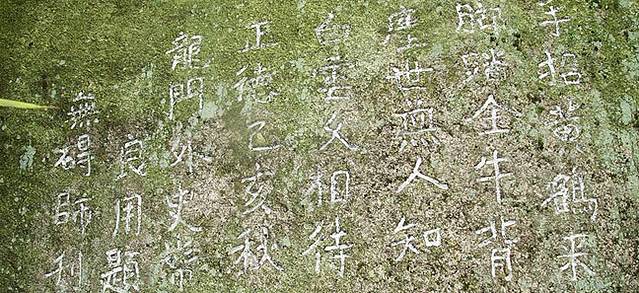 手招黃鶴来
脚踏金牛背
塵世無人知
白雲久相待
正德乙亥秋
龍門外史常
良用題
無碍師刊